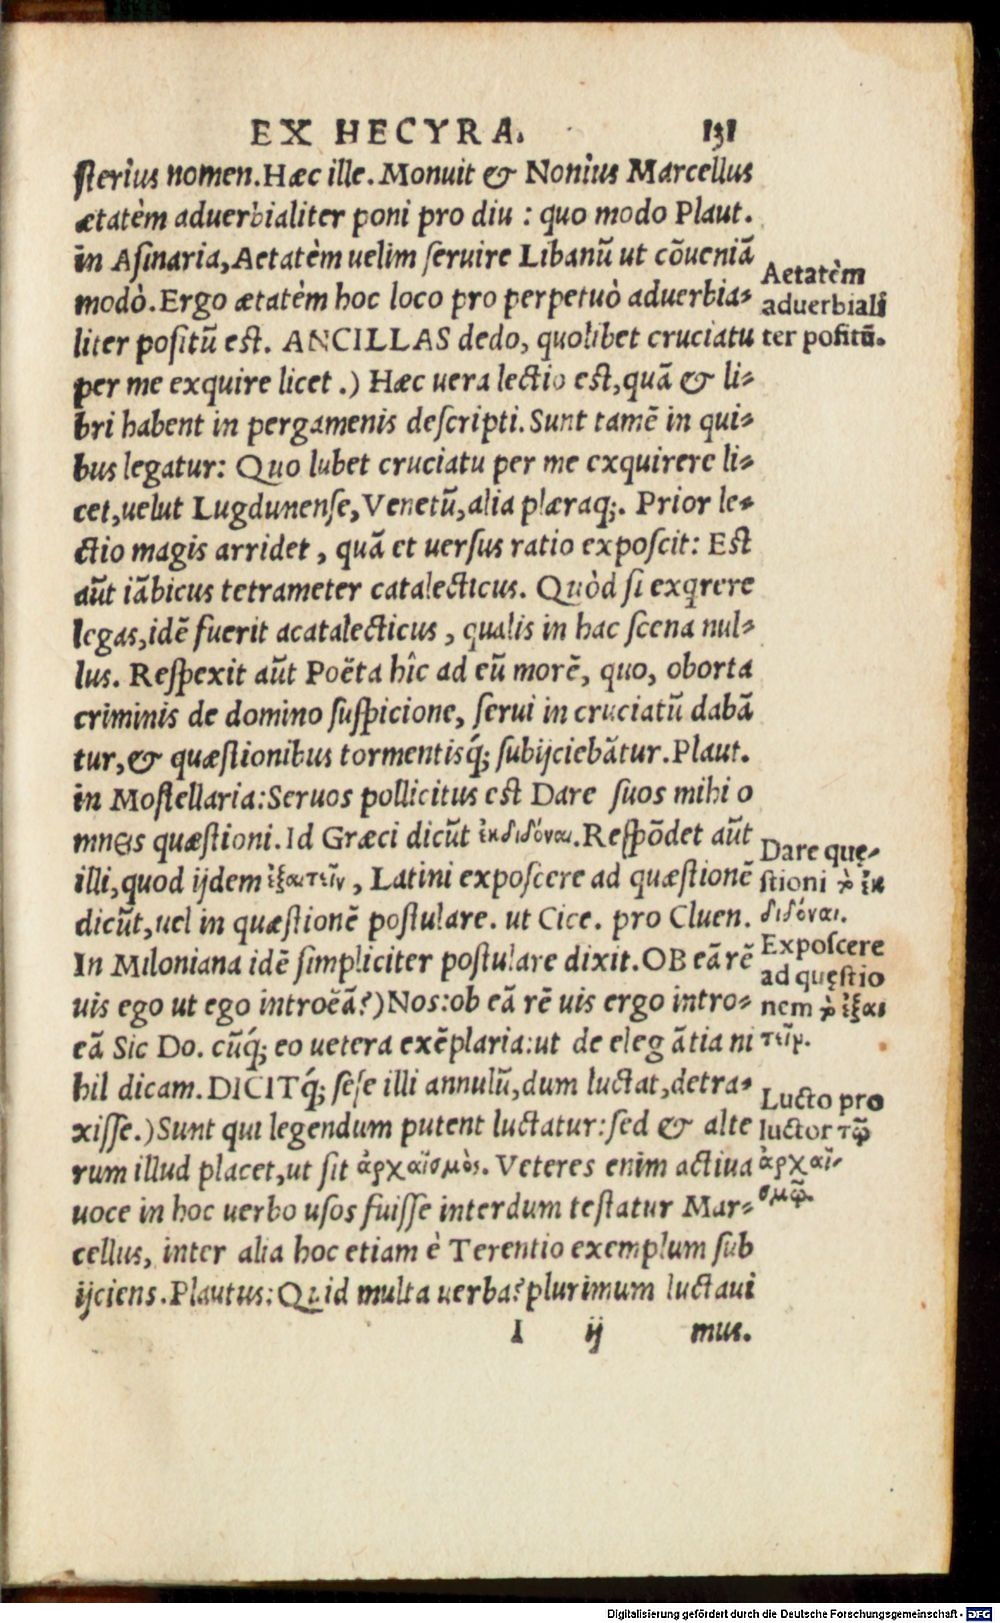 EX HECYRA. 131
sterius nomen. Hæc ille. Monuit & Nonius Marcellus
ætatèm aduerbialiter poni pro diu : quo modo Plaut.
in Asinaria, Aetatèm uelim seruire Libanũ ut cõueniã
modò. Ergo ætatèm hoc loco pro perpetuò aduerbia-
liter positũ est. ANCILLAS dedo, quolibet cruciatu
per me exquire licet.) Hæc uera lectio est, quã & li-
bri habent in pergamenis descripti. Sunt tamẽ in qui-
bus legatur: Quo lubet cruciatu per me exquirere li-
cet, uelut Lugdunense, Venetũ, alia plæraq;. Prior le-
ctio magis arridet, quã et uersus ratio exposcit: Est
aũt iãbicus tetrameter catalecticus. Quòd si exqrere
legas, idẽ fuerit acatalecticus, qualis in hac scena nul-
lus. Respexit aũt Poëta hîc ad eũ morẽ, quo, oborta
criminis de domino suspicione, serui in cruciatũ dabã
tur, & quæstionibus tormentisq́; subijciebãtur. Plaut.
in Mostellaria: Seruos pollicitus est Dare suos mihi o
mneis quæstioni. Id Græci dicũt ἐκδιδόναι. Respõdet aũt
illi, quod ijdem ἐξαιτεῖν, Latini exposcere ad quæstionẽ
dicũt, uel in quæstionẽ postulare. ut Cice. pro Cluen.
In Miloniana idẽ simpliciter postulare dixit. OB eã rẽ
uis ego ut ego introëã?) Nos: ob eã rẽ uis ergo intro-
eã Sic Do. cũq́; eo uetera exẽplaria: ut de elegãtia ni
hil dicam. DICITq́; sese illi annulũ, dum luctat, detra-
xisse.) Sunt qui legendum putent luctatur: sed & alte
rum illud placet, ut sit ἀρχαϊσμὸς. Veteres enim actiua
uoce in hoc uerbo usos fuisse interdum testatur Mar-
cellus, inter alia hoc etiam è Terentio exemplum sub
ijciens. Plautus: Quid multa uerba? plurimum luctaui
I ij mus.
Aetatèm
aduerbiali
ter positũ.
Dare quę-
stioni ἐκ
διδόναι.
Exposcere
ad quęstio
nem ἐξαι
τεῖν.
Lucto pro
luctor τῷ
ἀρχαϊ-
σμῷ.
Digitalisierung gefördert durch die Deutsche Forschungsgemeinschaft - DFG